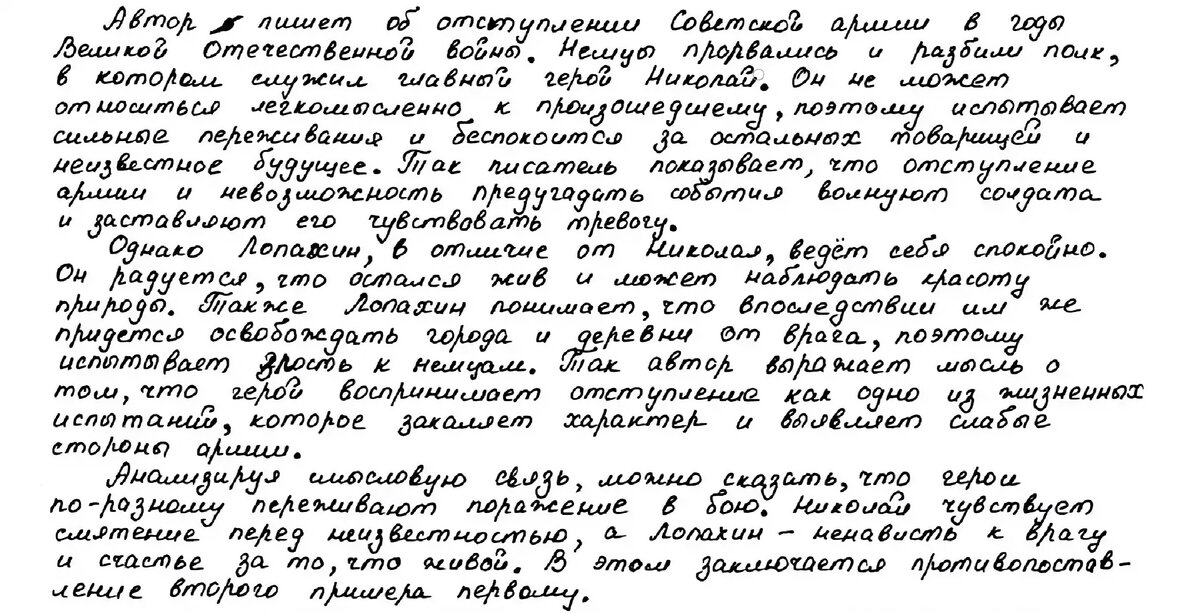 Автор пишет об отступлении Советской армии в годы
Великой Отечественной войны. Немцы прорвались и разбили полк,
в котором служил главный герой Николай. Он не может
относиться легкомысленно к произошедшему, поэтому испытывает
сильные переживания и беспокоится за остальных товарищей и
неизвестное будущее. Так писатель показывает, что отступление
армии и невозможность предугадать события волнуют солдата
и заставляют его чувствовать тревогу.
Однако Лопахин, в отличие от Николая, ведёт себя спокойно.
Он радуется, что остался жив и может наблюдать красоту
природы. Также Лопахин понимает, что впоследствии им же
придется освобождать города и деревни от врага, поэтому
испытывает злость к немцам. Так автор выражает мысль о
том, что герой воспринимает отступление как одно из жизненных
испытаний, которое закаляет характер и выявляет слабые
стороны армии.
Анализируя смысловую связь, можно сказать, что герои
по-разному переживают поражение в бою. Николай чувствует
смятение перед неизвестностью, а Лопахин - ненависть к врагу
и счастье за то, что живой. В этом заключается противопостав-
ление второго примера первому.